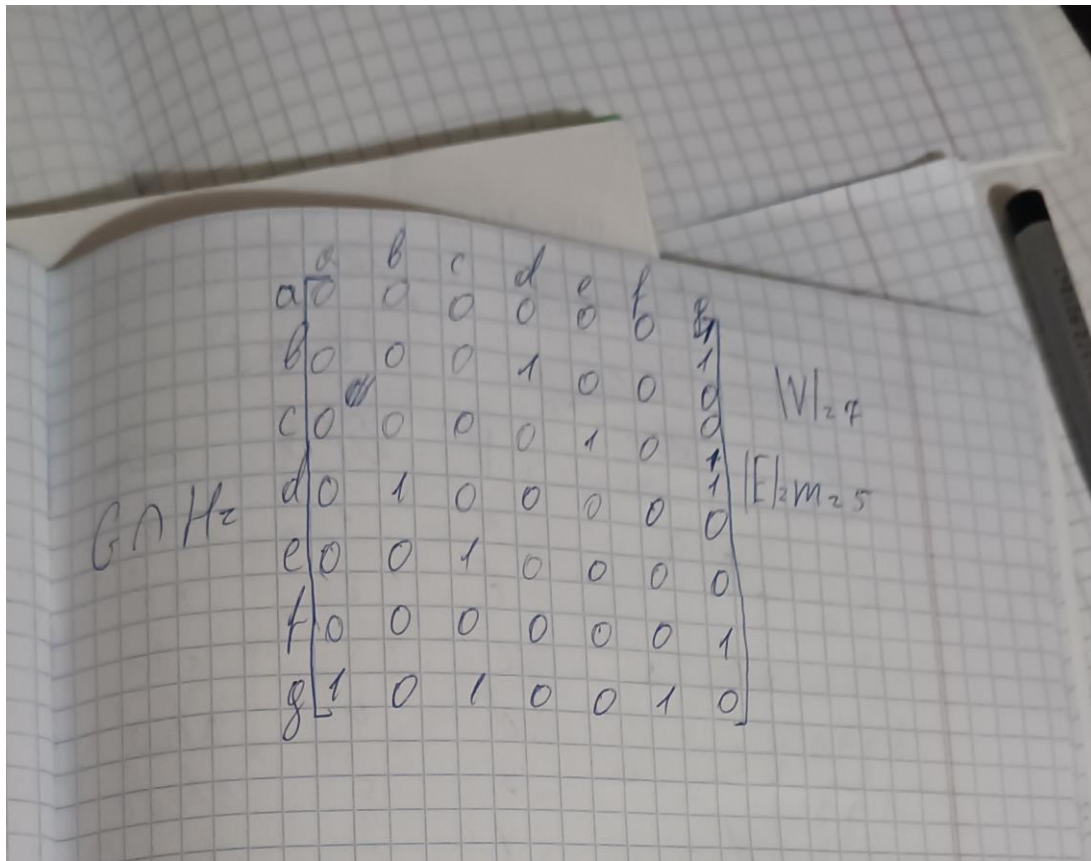 a b c d e f g
a 0 0 0 0 0 0 1
b 0 0 0 1 0 0 0
c 0 0 0 0 1 0 1
d 0 1 0 0 0 0 0
e 0 0 1 0 0 0 0
f 0 0 0 0 0 0 1
g 1 0 1 0 0 1 0
G∩H=
|V|=7
|E|=m=5